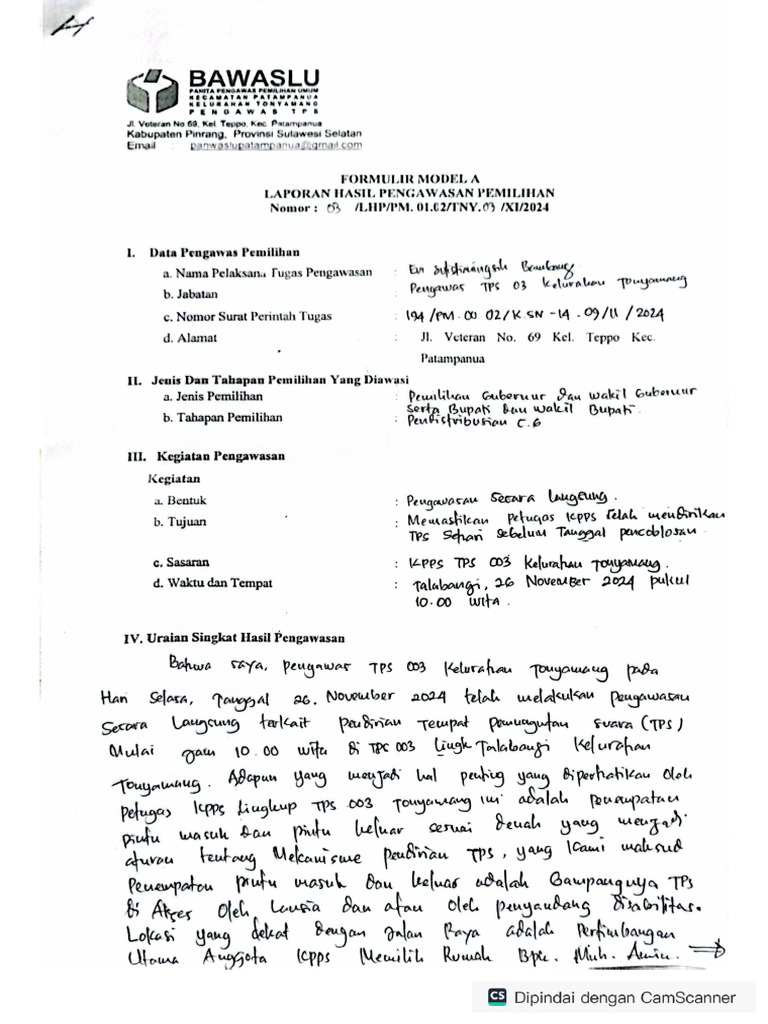 BAWASLU
PANITIA PENGAWAS PEMILIHAN UMUM
KECAMATAN PATAMPANUA
KELURAHAN TONYAMANG
PENGAWAS TPS
Jl. Veteran No 69, Kel. Teppo, Kec. Patampanua
Kabupaten Pinrang, Provinsi Sulawesi Selatan
Email : panwaslupatampanua@gmail.com
FORMULIR MODEL A
LAPORAN HASIL PENGAWASAN PEMILIHAN
Nomor : 03 /LHP/PM. 01.02/TNY.03 /XI/2024
I. Data Pengawas Pemilihan
a. Nama Pelaksana Tugas Pengawasan :
b. Jabatan : Pengawas TPS 03 Kelurahan Tonyamang
c. Nomor Surat Perintah Tugas : 194 /PM.00 02/K.SN-14.09/11/2024
d. Alamat : Jl. Veteran No. 69 Kel. Teppo Kec.
Patampanua
II. Jenis Dan Tahapan Pemilihan Yang Diawasi
a. Jenis Pemilihan : Pemilihan Gubernur dan Wakil Gubernur
serta Bupati dan Wakil Bupati.
b. Tahapan Pemilihan : Pendistribusian C.6
III. Kegiatan Pengawasan
Kegiatan
a. Bentuk : Pengawasan secara langsung.
b. Tujuan : Memastikan Petugas KPPS telah mendirikan
TPS Sehari sebelum Tanggal pencoblosan.
c. Sasaran : KPPS TPS 003 Kelurahan Tonyamang.
d. Waktu dan Tempat : Talabangi, 26 November 2024 pukul
10.00 wita.
IV. Uraian Singkat Hasil Pengawasan
Bahwa saya, pengawas TPS 003 Kelurahan Tonyamang pada
Hari Selasa, Tanggal 26. November 2024 telah melakukan pengawasan
Secara Langsung terkait pendirian Tempat pemungutan suara (TPS)
Mulai jam 10.00 wita di TPS 003 Lingk Talabangi Kelurahan
Tonyamang. Adapun yang menjadi hal penting yang diperhatikan oleh
petugas KPPS Lingkup TPS 003 Tonyamang ini adalah penempatan
pintu masuk dan pintu keluar sesuai denah yang menjadi
aturan tentang Mekanisme pendirian TPS, yang kami maksud
Penempatan pintu masuk dan keluar adalah Gampangnya TPS
di Akses Oleh Lansia dan atau oleh penyandang Disabilitas.
Lokasi yang dekat dengan Jalan Raya adalah Pertimbangan
Utama Anggota KPPS Memilih Rumah Bpk. Muh. Amin.
CS Dipindai dengan CamScanner